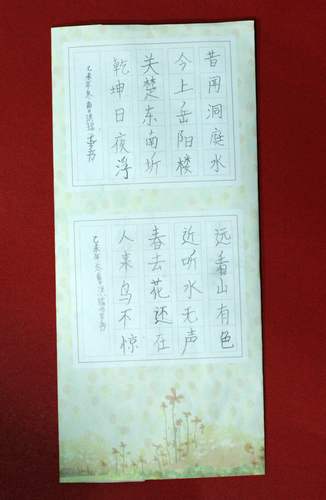 昔闻洞庭水
今上岳阳楼
吴楚东南坼
乾坤日夜浮
乙亥年冬
远看山有色
近听水无声
春去花还在
人来鸟不惊
乙亥年冬